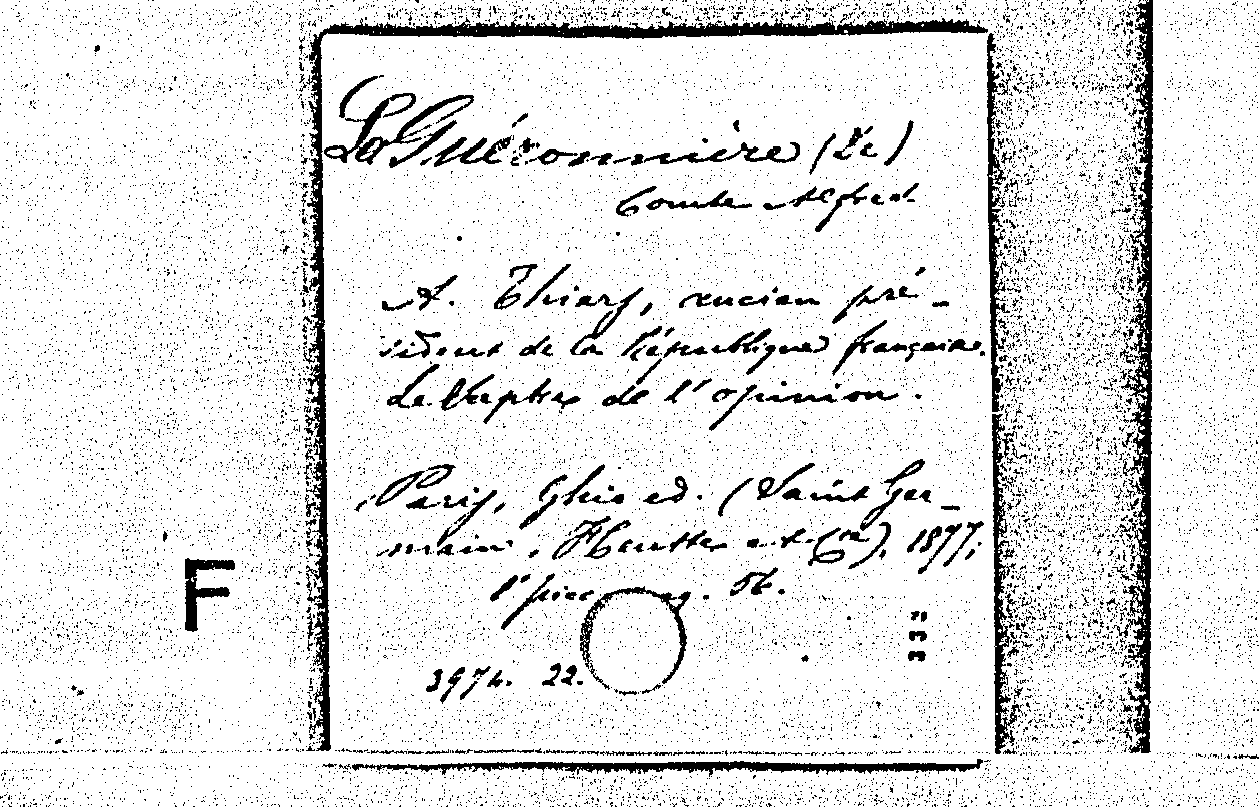 La Guéronnière (De)
Comte Alfred.
A. Thiers, ancien pré-
sident de la République française.
de l'opinion.
Paris, Ghio ed. (Saint Ger-
main, Heutte et Cie), 1877;
1 pièce 56.
F
3974. 22.